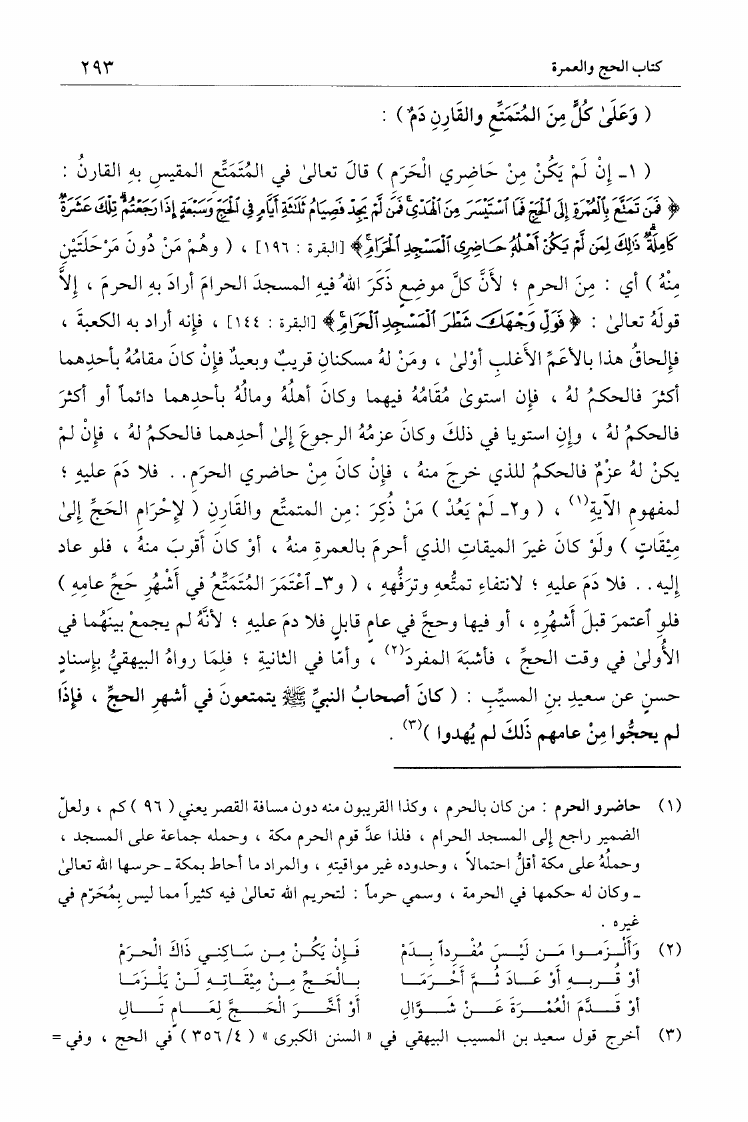 كتاب الحج والعمرة ٢٩٣
( وَعَلَىٰ كُلٍّ مِنَ المُتَمَتِّعِ والقَارِنِ دَمٌ ) :
( ١ـ إِنْ لَمْ يَكُنْ مِنْ حَاضِرِي الْحَرَمِ ) قالَ تعالىٰ في المُتَمَتِّعِ المقيسِ بهِ القارنُ :
﴿ فَمَن تَمَتَّعَ بِٱلْعُمْرَةِ إِلَى ٱلْحَجِّ فَمَا ٱسْتَيْسَرَ مِنَ ٱلْهَدْيِ فَمَن لَّمْ يَجِدْ فَصِيَامُ ثَلَٰثَةِ أَيَّامٍ فِي ٱلْحَجِّ وَسَبْعَةٍ إِذَا رَجَعْتُمْ تِلْكَ عَشَرَةٌ
كَامِلَةٌ ذَٰلِكَ لِمَن لَّمْ يَكُنْ أَهْلُهُ حَاضِرِي ٱلْمَسْجِدِ ٱلْحَرَامِ ﴾ [البقرة : ١٩٦] ، ( وهُمْ مَنْ دُونَ مَرْحَلَتَيْنِ
مِنْهُ ) أي : مِنَ الحرمِ ؛ لأَنَّ كلَّ موضعٍ ذَكَرَ اللهُ فيهِ المسجدَ الحرامَ أرادَ بهِ الحرمَ ، إلاَّ
قولَهُ تعالىٰ : ﴿ فَوَلِّ وَجْهَكَ شَطْرَ ٱلْمَسْجِدِ ٱلْحَرَامِ ﴾ [البقرة : ١٤٤] ، فإنه أراد به الكعبةَ ،
فإلحاقُ هذا بالأعمِّ الأغلبِ أوْلىٰ ، ومَنْ لهُ مسكنانِ قريبٌ وبعيدٌ فإنْ كانَ مقامُهُ بأحدِهما
أكثرَ فالحكمُ لهُ ، فإن استوىٰ مُقَامُهُ فيهما وكانَ أهلُهُ ومالُهُ بأحدِهما دائماً أو أكثرَ
فالحكمُ لهُ ، وإنِ استويا في ذلكَ وكانَ عزمُهُ الرجوعَ إلىٰ أحدِهما فالحكمُ لهُ ، فإنْ لمْ
يكنْ لهُ عزْمٌ فالحكمُ للذي خرجَ منهُ ، فإنْ كانَ مِنْ حاضري الحرَمِ . . فلا دَمَ عليهِ ؛
لمفهومِ الآيةِ(١) ، ( و٢ـ لَمْ يَعُدْ ) مَنْ ذُكِرَ : مِن المتمتِّعِ والقَارِنِ ( لإِحْرَامِ الحَجِّ إِلىٰ
مِيْقَاتٍ ) ولَوْ كانَ غيرَ الميقاتِ الذي أحرمَ بالعمرةِ منهُ ، أوْ كانَ أقربَ منهُ ، فلو عاد
إليه . . فلا دَمَ عليهِ ؛ لانتفاءِ تمتُّعهِ وترَفُّههِ ، ( و٣ـ ٱعْتَمَرَ المُتَمَتِّعُ في أَشْهُرِ حَجِّ عامِهِ )
فلوِ ٱعتمرَ قبلَ أَشْهُرِهِ ، أو فيها وحجَّ في عامٍ قابلٍ فلا دمَ عليهِ ؛ لأنَّهُ لم يجمعْ بينَهُما في
الأُولىٰ في وقت الحجِّ ، فأشبَهَ المفردَ(٢) ، وأمّا في الثانيةِ ؛ فلِمَا رواهُ البيهقيُّ بإسنادٍ
حسنٍ عن سعيدِ بنِ المسيِّبِ : ( كانَ أصحابُ النبيِّ ﷺ يتمتعونَ في أشهرِ الحجِّ ، فإِذَا
لم يحجُّوا مِنْ عامهم ذَلكَ لم يُهدوا )(٣) .
(١) حاضرو الحرم : من كان بالحرم ، وكذا القريبون منه دون مسافة القصر يعني ( ٩٦ ) كم ، ولعلّ
الضمير راجع إلى المسجد الحرام ، فلذا عدَّ قوم الحرم مكة ، وحمله جماعة على المسجد ،
وحملُهُ على مكة أقلُّ احتمالاً ، وحدوده غير مواقيته ، والمراد ما أحاط بمكة ـ حرسها الله تعالىٰ
ـ وكان له حكمها في الحرمة ، وسمي حرماً : لتحريم الله تعالىٰ فيه كثيراً مما ليس بِمُحَرّم في
غيره .
(٢) وَأَلْـزَمـوا مَـن لَيْـسَ مُفْـرِداً بِـدَمْ فَـإِنْ يَكُـنْ مِـن سَـاكِنـي ذَاكَ الْحـرَمْ
أوْ قُـربـهِ أوْ عَـادَ ثُـمَّ أَحْـرَمَـا بـالْحَـجِّ مِـنْ مِيْقَـاتِـهِ لَـنْ يَلْـزَمَـا
أوْ قَـدَّمَ الْعُمْـرَةَ عَـنْ شَـوَّالِ أَوْ أَخَّـرَ الْحَـجَّ لِعَـامٍ تَـالِ
(٣) أخرج قول سعيد بن المسيب البيهقي في « السنن الكبرى » ( ٤/ ٣٥٦ ) في الحج ، وفي =